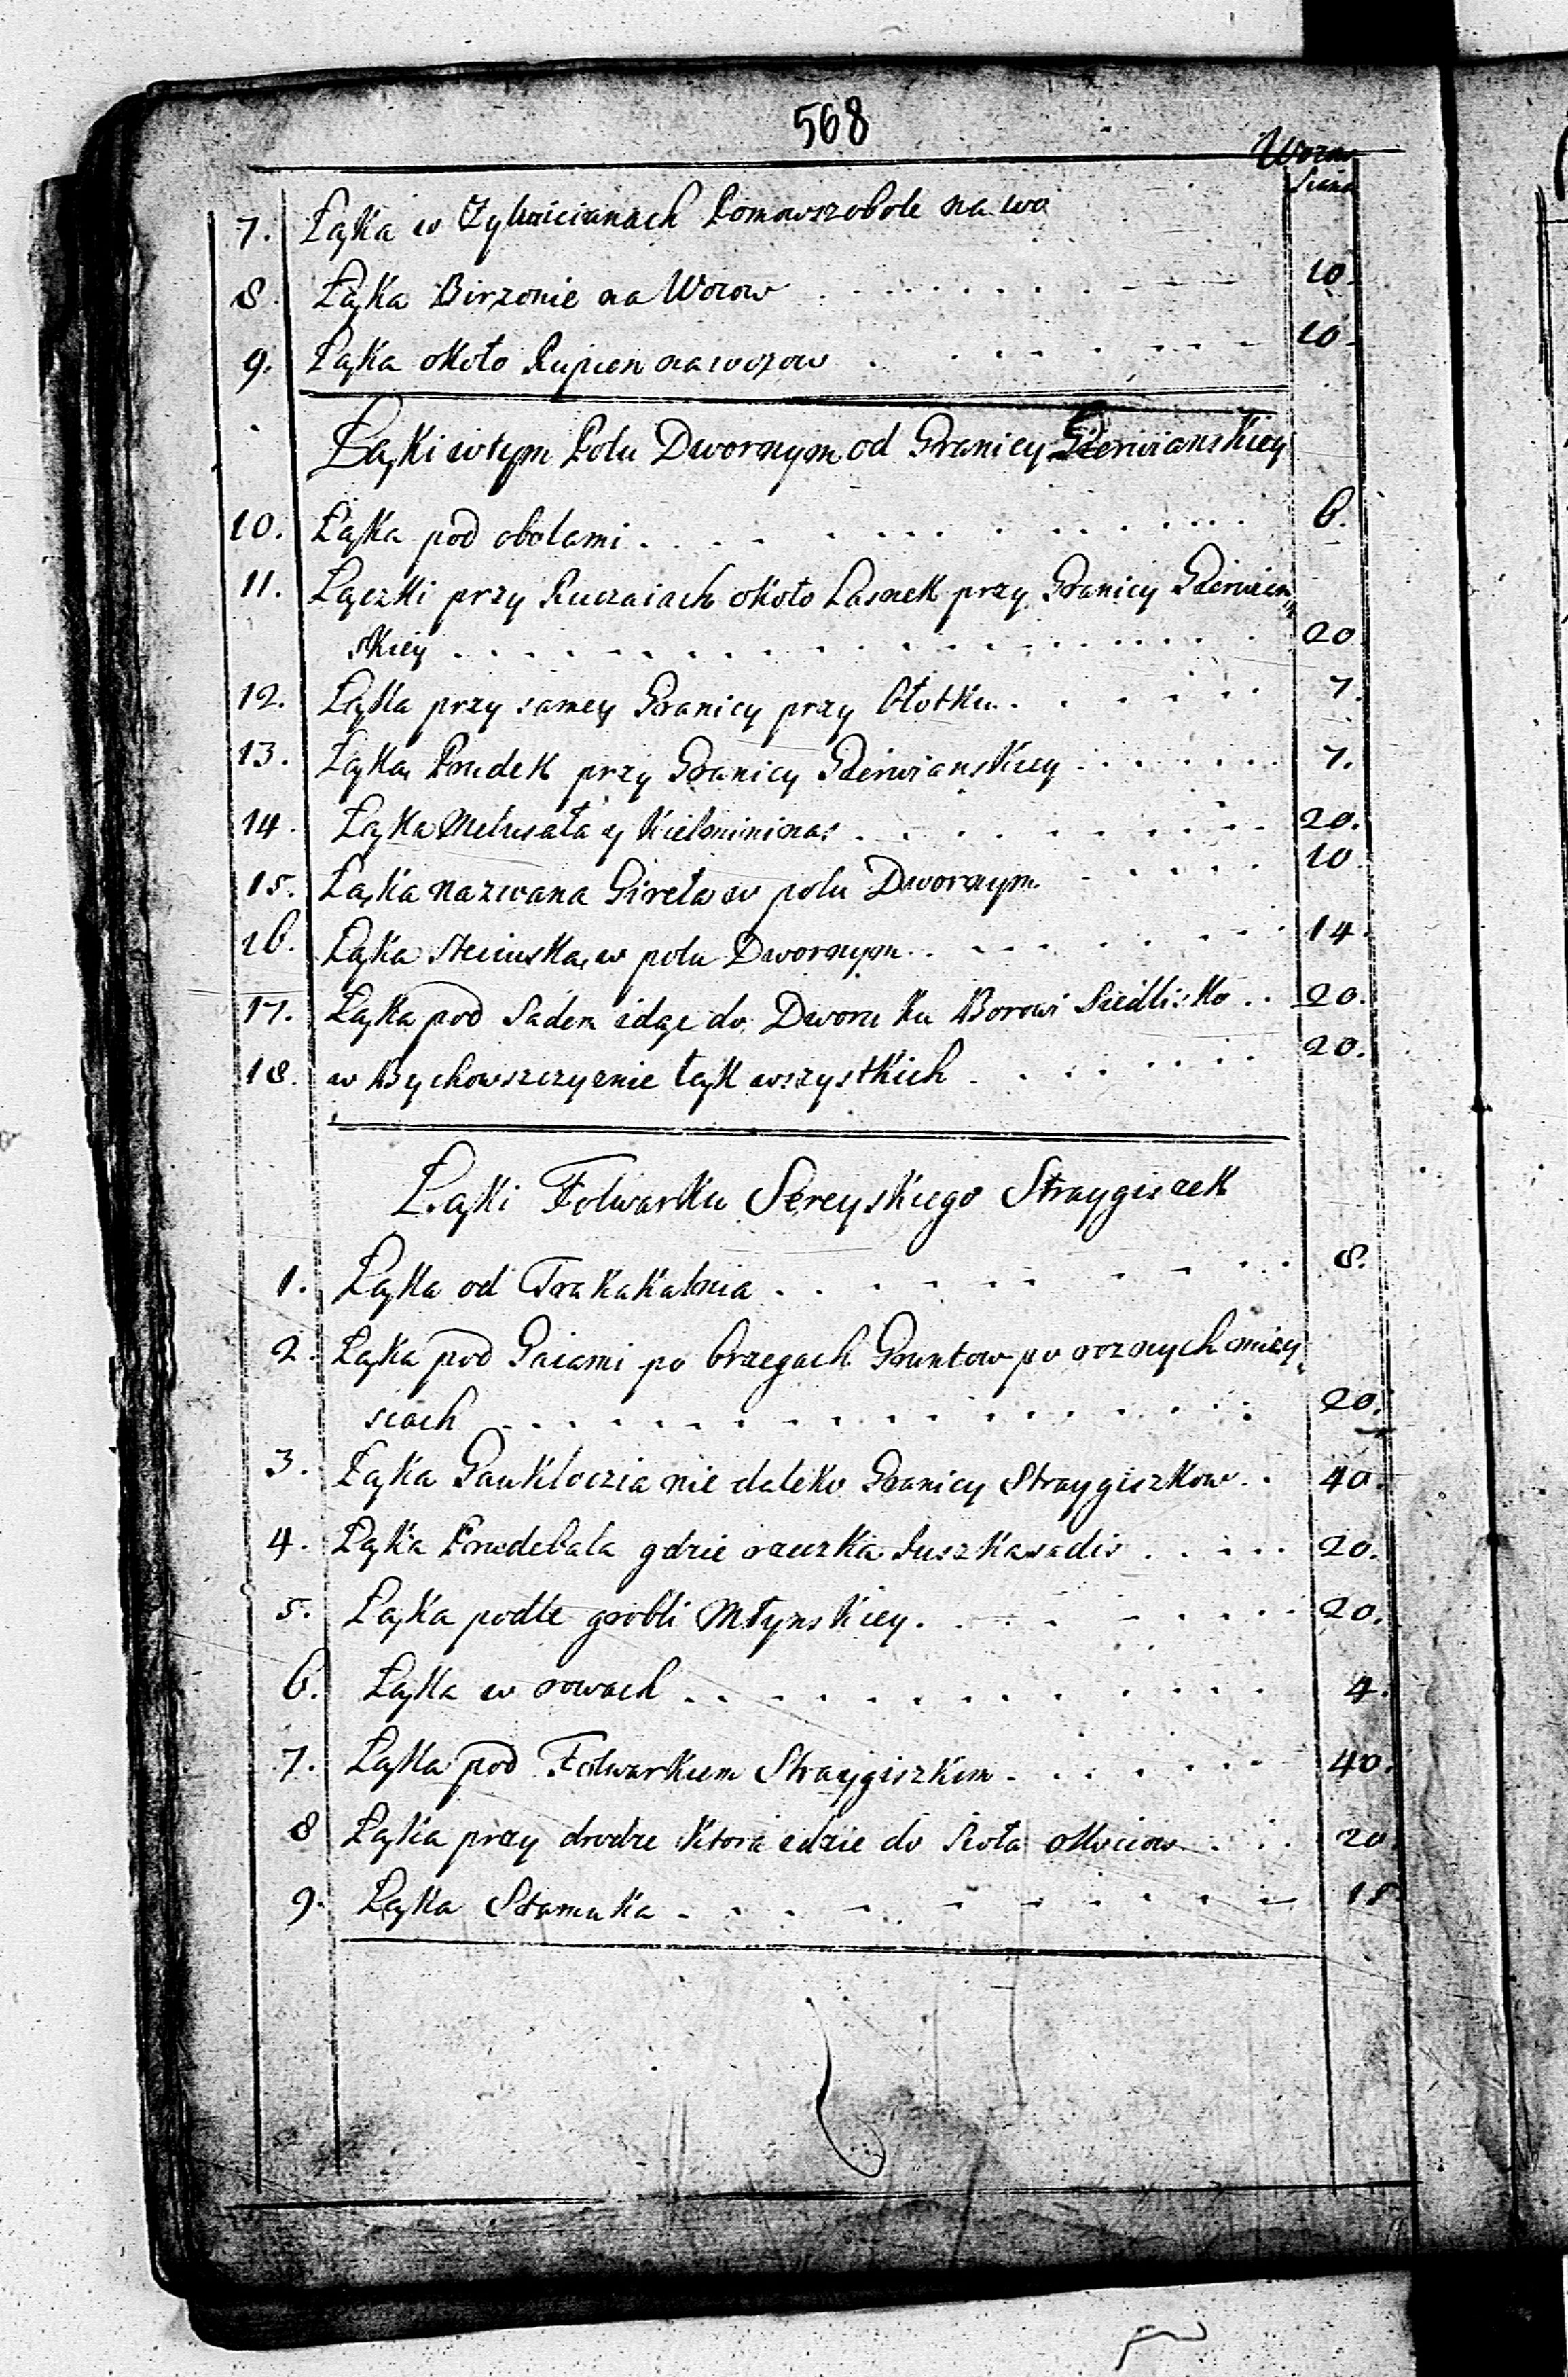 568
Wozow
Siana
7. Łąka w Pomowszobole na wo
8. Łąka Birzonie na Wozow 10.
9. Łąka około Rupien na wozow 10.
Łąki w tym Polu Dwornym od Granicy Gierwianskiey
10. Łąka pod obolami 6.
11. Łączki przy Ruczaiach około Lasnek przy Granicy Gierwian„
skiey 20
12. Łąka przy samey Granicy przy błotku 7.
13. Łąka Prudek przy Granicy Gierwianskiey 7.
14. Łąka Melusała y Kielmininas 20.
15. Łąka nazwana Gireła w polu Dwornym 10.
16. Łąka w polu Dwornym 14.
17. Łąka pod Sadem idąc do Dworu ku Borowi Siedlisko 20.
18. w Bychowszczyznie łąk wszystkich 20.
Łąki Folwarku Sereyskiego Straygiszek
1. Łąka od Trakakalnia 8.
2. Łąka pod Gaiami po brzegach Gruntow po roznych miey„
scach 20.
3. Łąka Gaukloczia nie daleko Granicy Straygiszkow 40.
4. Łąka Prudebala gdzie rzeczka Suszkasadis 20.
5. Łąka podle grobli Młynskiey 20.
6. Łąka w rowach 4.
7. Łąka pod Folwarkiem Straygiszkim 40.
8 Łąka przy drodze ktora idzie do Sioła 20.
9. Łąka Stamuka 18